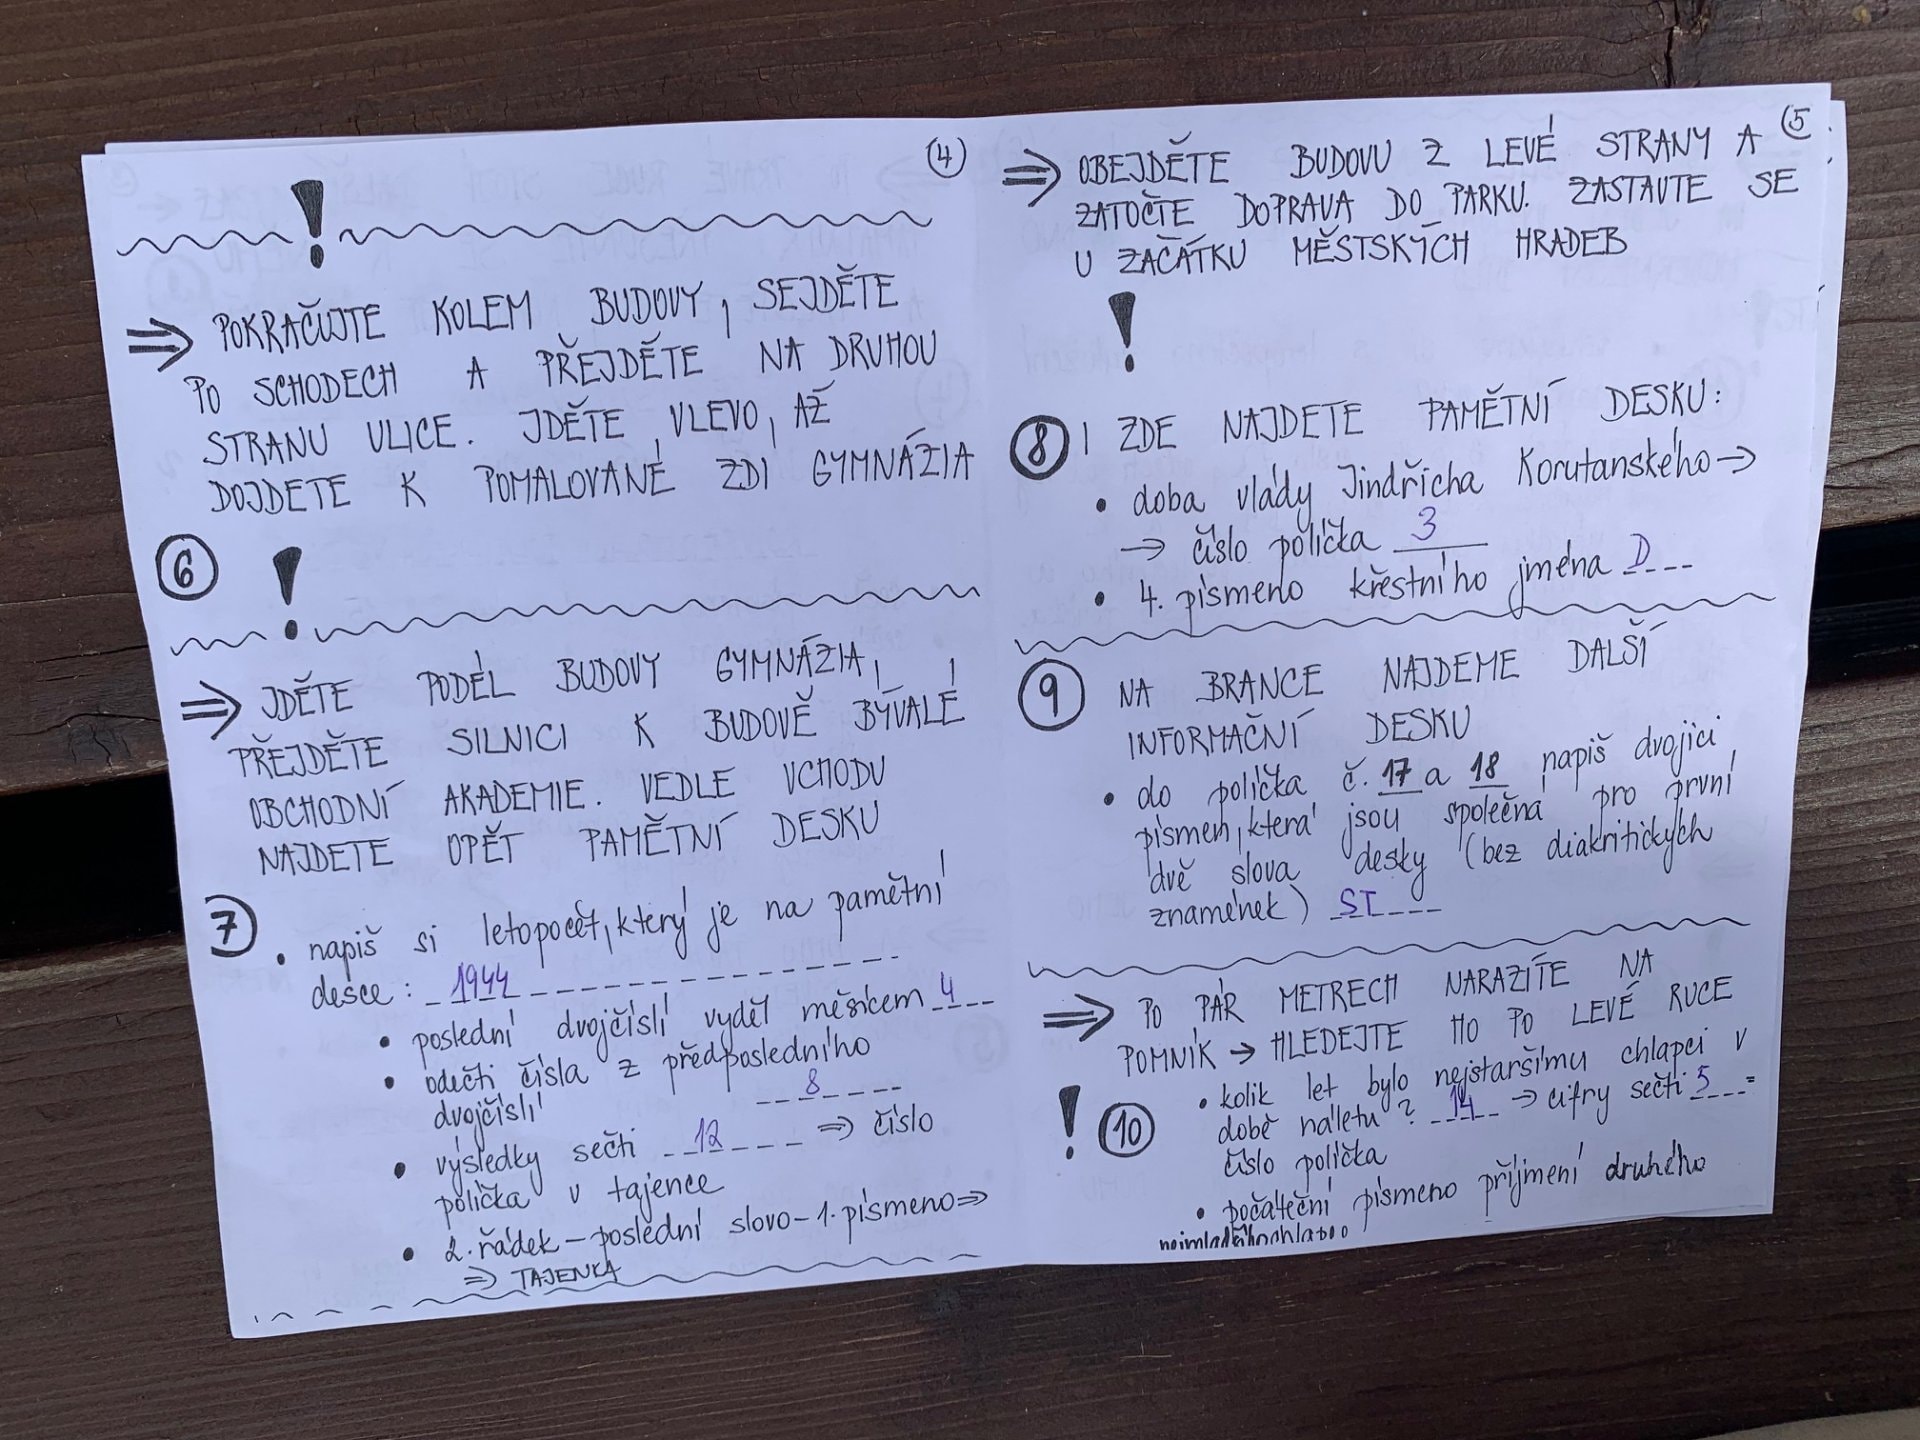 ④
!
⇒ POKRAČUJTE KOLEM BUDOVY, SEJDĚTE
PO SCHODECH A PŘEJDĚTE NA DRUHOU
STRANU ULICE. JDĚTE VLEVO, AŽ
DOJDETE K POMALOVANÉ ZDI GYMNÁZIA
⑥ !
⇒ JDĚTE PODÉL BUDOVY GYMNÁZIA,
PŘEJDĚTE SILNICI K BUDOVĚ BÝVALÉ
OBCHODNÍ AKADEMIE. VEDLE VCHODU
NAJDETE OPĚT PAMĚTNÍ DESKU
⑦ • napiš si letopočet, který je na pamětní
desce: 1944
• poslední dvojčíslí vyděl měsícem 4
• odečti čísla z předposledního
dvojčíslí 8
• výsledky sečti 12 ⇒ číslo
políčka v tajence
• 2. řádek – poslední slovo – 1. písmeno ⇒
⇒ TAJENKA
⑤
⇒ OBEJDĚTE BUDOVU Z LEVÉ STRANY A
ZATOČTE DOPRAVA DO PARKU. ZASTAVTE SE
U ZAČÁTKU MĚSTSKÝCH HRADEB
!
⑧ I ZDE NAJDETE PAMĚTNÍ DESKU:
• doba vlády Jindřicha Korutanského →
→ číslo políčka 3
• 4. písmeno křestního jména D
⑨ NA BRANCE NAJDEME DALŠÍ
INFORMAČNÍ DESKU
• do políčka č. 17 a 18 napiš dvojici
písmen, která jsou společná pro první
dvě slova desky (bez diakritických
znamének) ST
⇒ PO PÁR METRECH NARAZÍTE NA
POMNÍK → HLEDEJTE HO PO LEVÉ RUCE
! ⑩ • kolik let bylo nejstaršímu chlapci v
době náletu? 14 ⇒ cifry sečti 5 =
číslo políčka
• počáteční písmeno příjmení druhého
nejmladšího chlapce